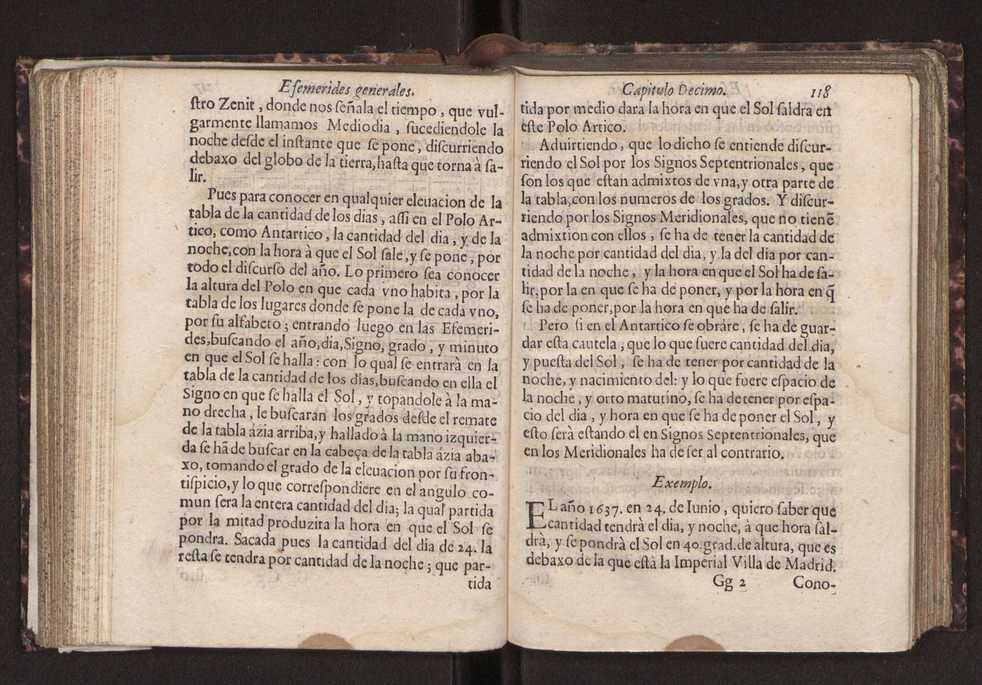 Efemerides generales.
ſtro Zenit, donde nos ſeñala el tiempo, que vul-
garmente llamamos Mediodia, ſucediendole la
noche deſde el inſtante que ſe pone, diſcurriendo
debaxo del globo de la tierra, haſta que torna à ſa-
lir.
Pues para conocer en qualquier eleuacion de la
tabla de la cantidad de los dias, aſſi en el Polo Ar-
tico, como Antartico, la cantidad del dia, y de la
noche, con la hora à que el Sol ſale, y ſe pone, por
todo el diſcurſo del año. Lo primero ſea conocer
la altura del Polo en que cada vno habita, por la
tabla de los lugares donde ſe pone la de cada vno,
por ſu alfabeto; entrando luego en las Efemeri-
des, buſcando el año, dia, Signo, grado, y minuto
en que el Sol ſe halla: con lo qual ſe entrarà en la
tabla de la cantidad de los dias, buſcando en ella el
Signo en que ſe halla el Sol, y topandole à la ma-
no drecha, le buſcaran los grados deſde el remate
de la tabla ázia arriba, y hallado à la mano izquier-
da ſe hã de buſcar en la cabeça de la tabla ázia aba-
xo, tomando el grado de la eleuacion por ſu fron-
tiſpicio, y lo que correſpondiere en el angulo co-
mun ſera la entera cantidad del dia; la qual partida
por la mitad produzira la hora en que el Sol ſe
pondra. Sacada pues la cantidad del dia de 24. la
reſta ſe tendra por cantidad de la noche; que par-
tida
Capitulo Decimo. 118
tida por medio dara la hora en que el Sol ſaldra en
eſte Polo Artico.
Aduirtiendo, que lo dicho ſe entiende diſcur-
riendo el Sol por los Signos Septentrionales, que
ſon los que eſtan admixtos de vna, y otra parte de
la tabla, con los numeros de los grados. Y diſcur-
riendo por los Signos Meridionales, que no tienẽ
admixtion con ellos, ſe ha de tener la cantidad de
la noche por cantidad del dia, y la del dia por can-
tidad de la noche, y la hora en que el Sol ha de ſa-
lir, por la en que ſe ha de poner, y por la hora en q̃
ſe ha de poner, por la hora en que ha de ſalir.
Pero ſi en el Antartico ſe obràre, ſe ha de guar-
dar eſta cautela, que lo que fuere cantidad del dia,
y pueſta del Sol, ſe ha de tener por cantidad de la
noche, y nacimiento del: y lo que fuere eſpacio de
la noche, y orto matutino, ſe ha de tener por eſpa-
cio del dia, y hora en que ſe ha de poner el Sol, y
eſto ſerà eſtando el en Signos Septentrionales, que
en los Meridionales ha de ſer al contrario.
Exemplo.
EL año 1637. en 24. de Iunio, quiero ſaber que
cantidad tendrà el dia, y noche, à que hora ſal-
drà, y ſe pondrà el Sol en 40. grad. de altura, que es
debaxo de la que eſtà la Imperial Villa de Madrid.
Gg 2 Cono-